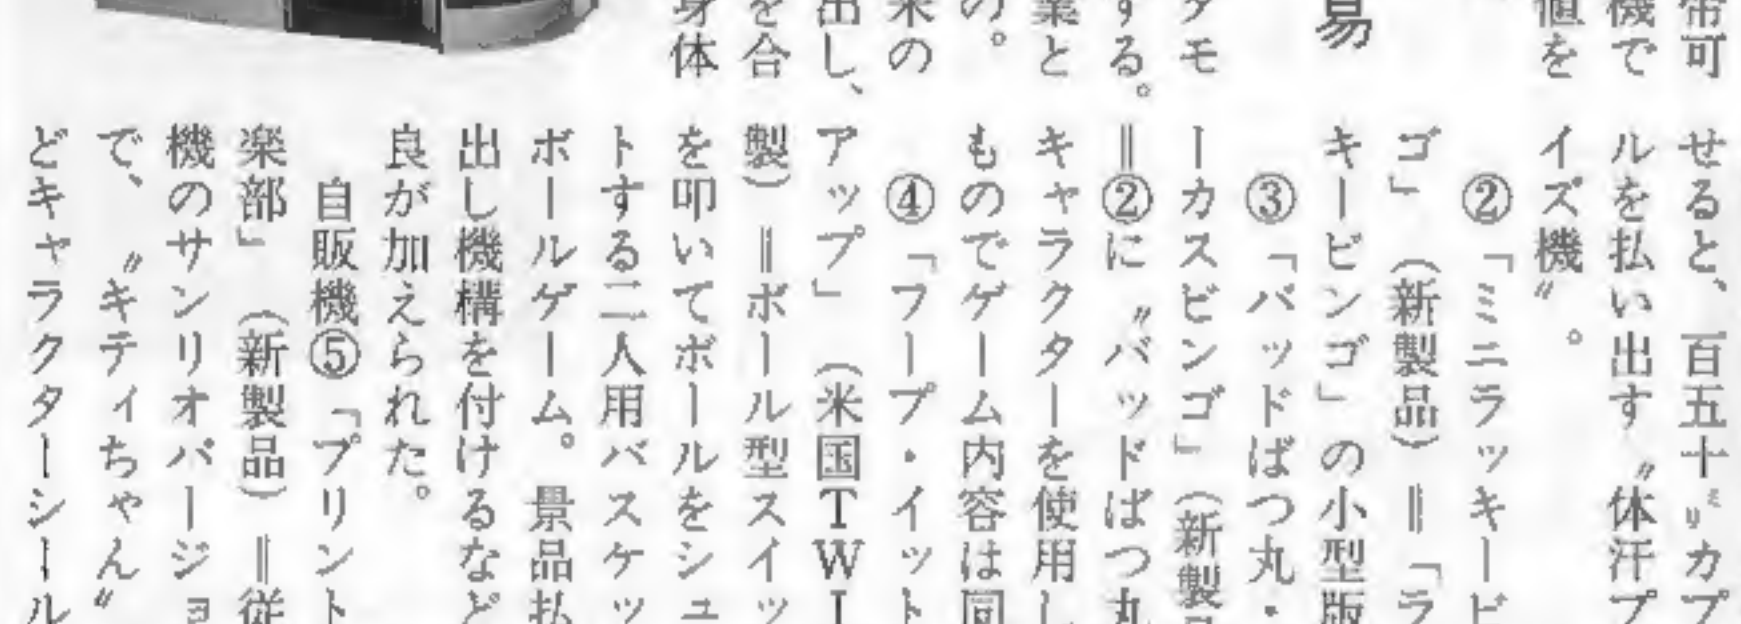 帯可
機で
値を
易
タモ
する。
業と
の。
来の
出し、
を合
身体
せると、百五十㍉カプ
ルを払い出す〝体汗プ
イズ機〟。
②「ミニラッキービ
ゴ」（新製品）＝「ラ
キービンゴ」の小型版
③「バッドばつ丸・
ーカスビンゴ」（新製品
＝②に〝バッドばつ丸
キャラクターを使用し
ものでゲーム内容は同
④「フープ・イット
アップ」（米国ＴＷＩ
製）＝ボール型スイッ
を叩いてボールをシュ
トする二人用バスケッ
ボールゲーム。景品払
出し機構を付けるなど
良が加えられた。
自販機⑤「プリント
楽部」（新製品）＝従
機のサンリオバージョ
で、〝キティちゃん〟
どキャラクターシール